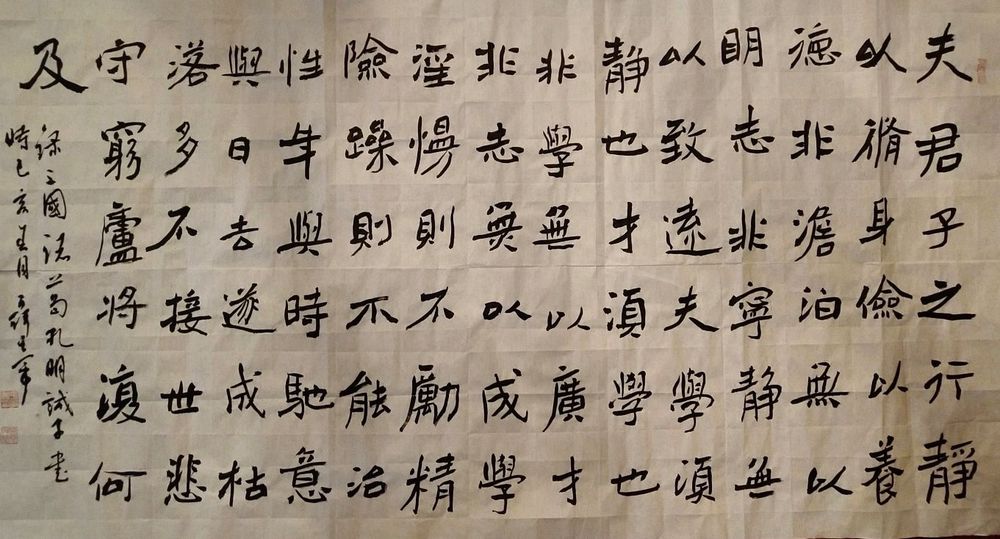 夫君子之行靜
以脩身儉以養
德非澹泊無以
明志非寧靜無
以致遠夫學須
靜也才須學也
非學無以廣才
非志無以成學
淫慢則不勵精
險躁則不能治
性年與時馳意
與日去遂成枯
落多不接世悲
守窮廬將復何
及
錄三國諸葛孔明誡子書
時己亥